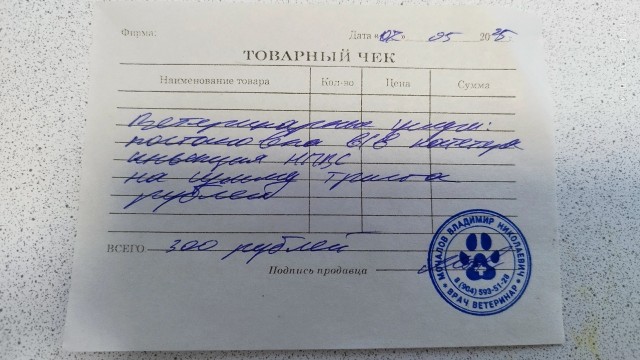 Фирма: Дата «02» 05 2025
ТОВАРНЫЙ ЧЕК
Наименование товара Кол-во Цена Сумма
Ветеринарные услуги:
постановка в/в катетера
инъекция НПВС
на сумму триста
рублей
ВСЕГО 300 рублей
Подпись продавца
МОЧАЛОВ ВЛАДИМИР НИКОЛАЕВИЧ
8 (904) 593-51-28
ВРАЧ ВЕТЕРИНАР